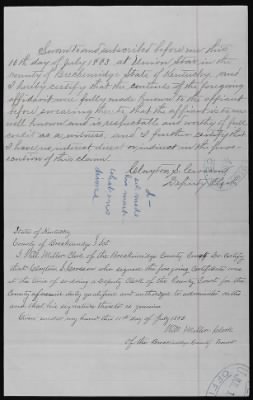 Sworn to and subscribed before me this
10th day of July 1903. at Union Star in the
county of Breckenridge State of Kentucky, and
I hereby certify that the contents of the foregoing
affidavit were fully made known to the affiant
before swearing thereto that the affiant is to me
well known and is respectable and worthy of full
credit as a witness, and I further certify that
I have no interest direct or indirect in the prose-
cution of this claim.
Clayton S.
Deputy Clerk
State of Kentucky
County of Breckenridge } Sct
I Will Miller Clerk of the Breckinridge County Court Do Certify
that Clayton S. who signed the foregoing Certificate was
at the time of so doing a Deputy Clerk of the County Court for the
County aforesaid duly qualified and authorized to administer oaths
and that his signature thereto is genuine
Given under my hand this 11th day of July 1903
Will Miller Clerk
Of the Breckinridge County Court